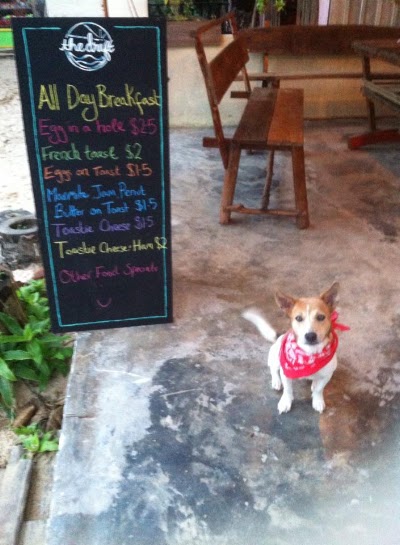 the dri½t
All Day Breakfast
Egg in a hole $2.5
French toast $2
Eggs on Toast $1.5
Marmite Jam Penut
Butter on Toast $1.5
Toastie Cheese $1.5
Toastie Cheese + Ham $2
Other Food Specials